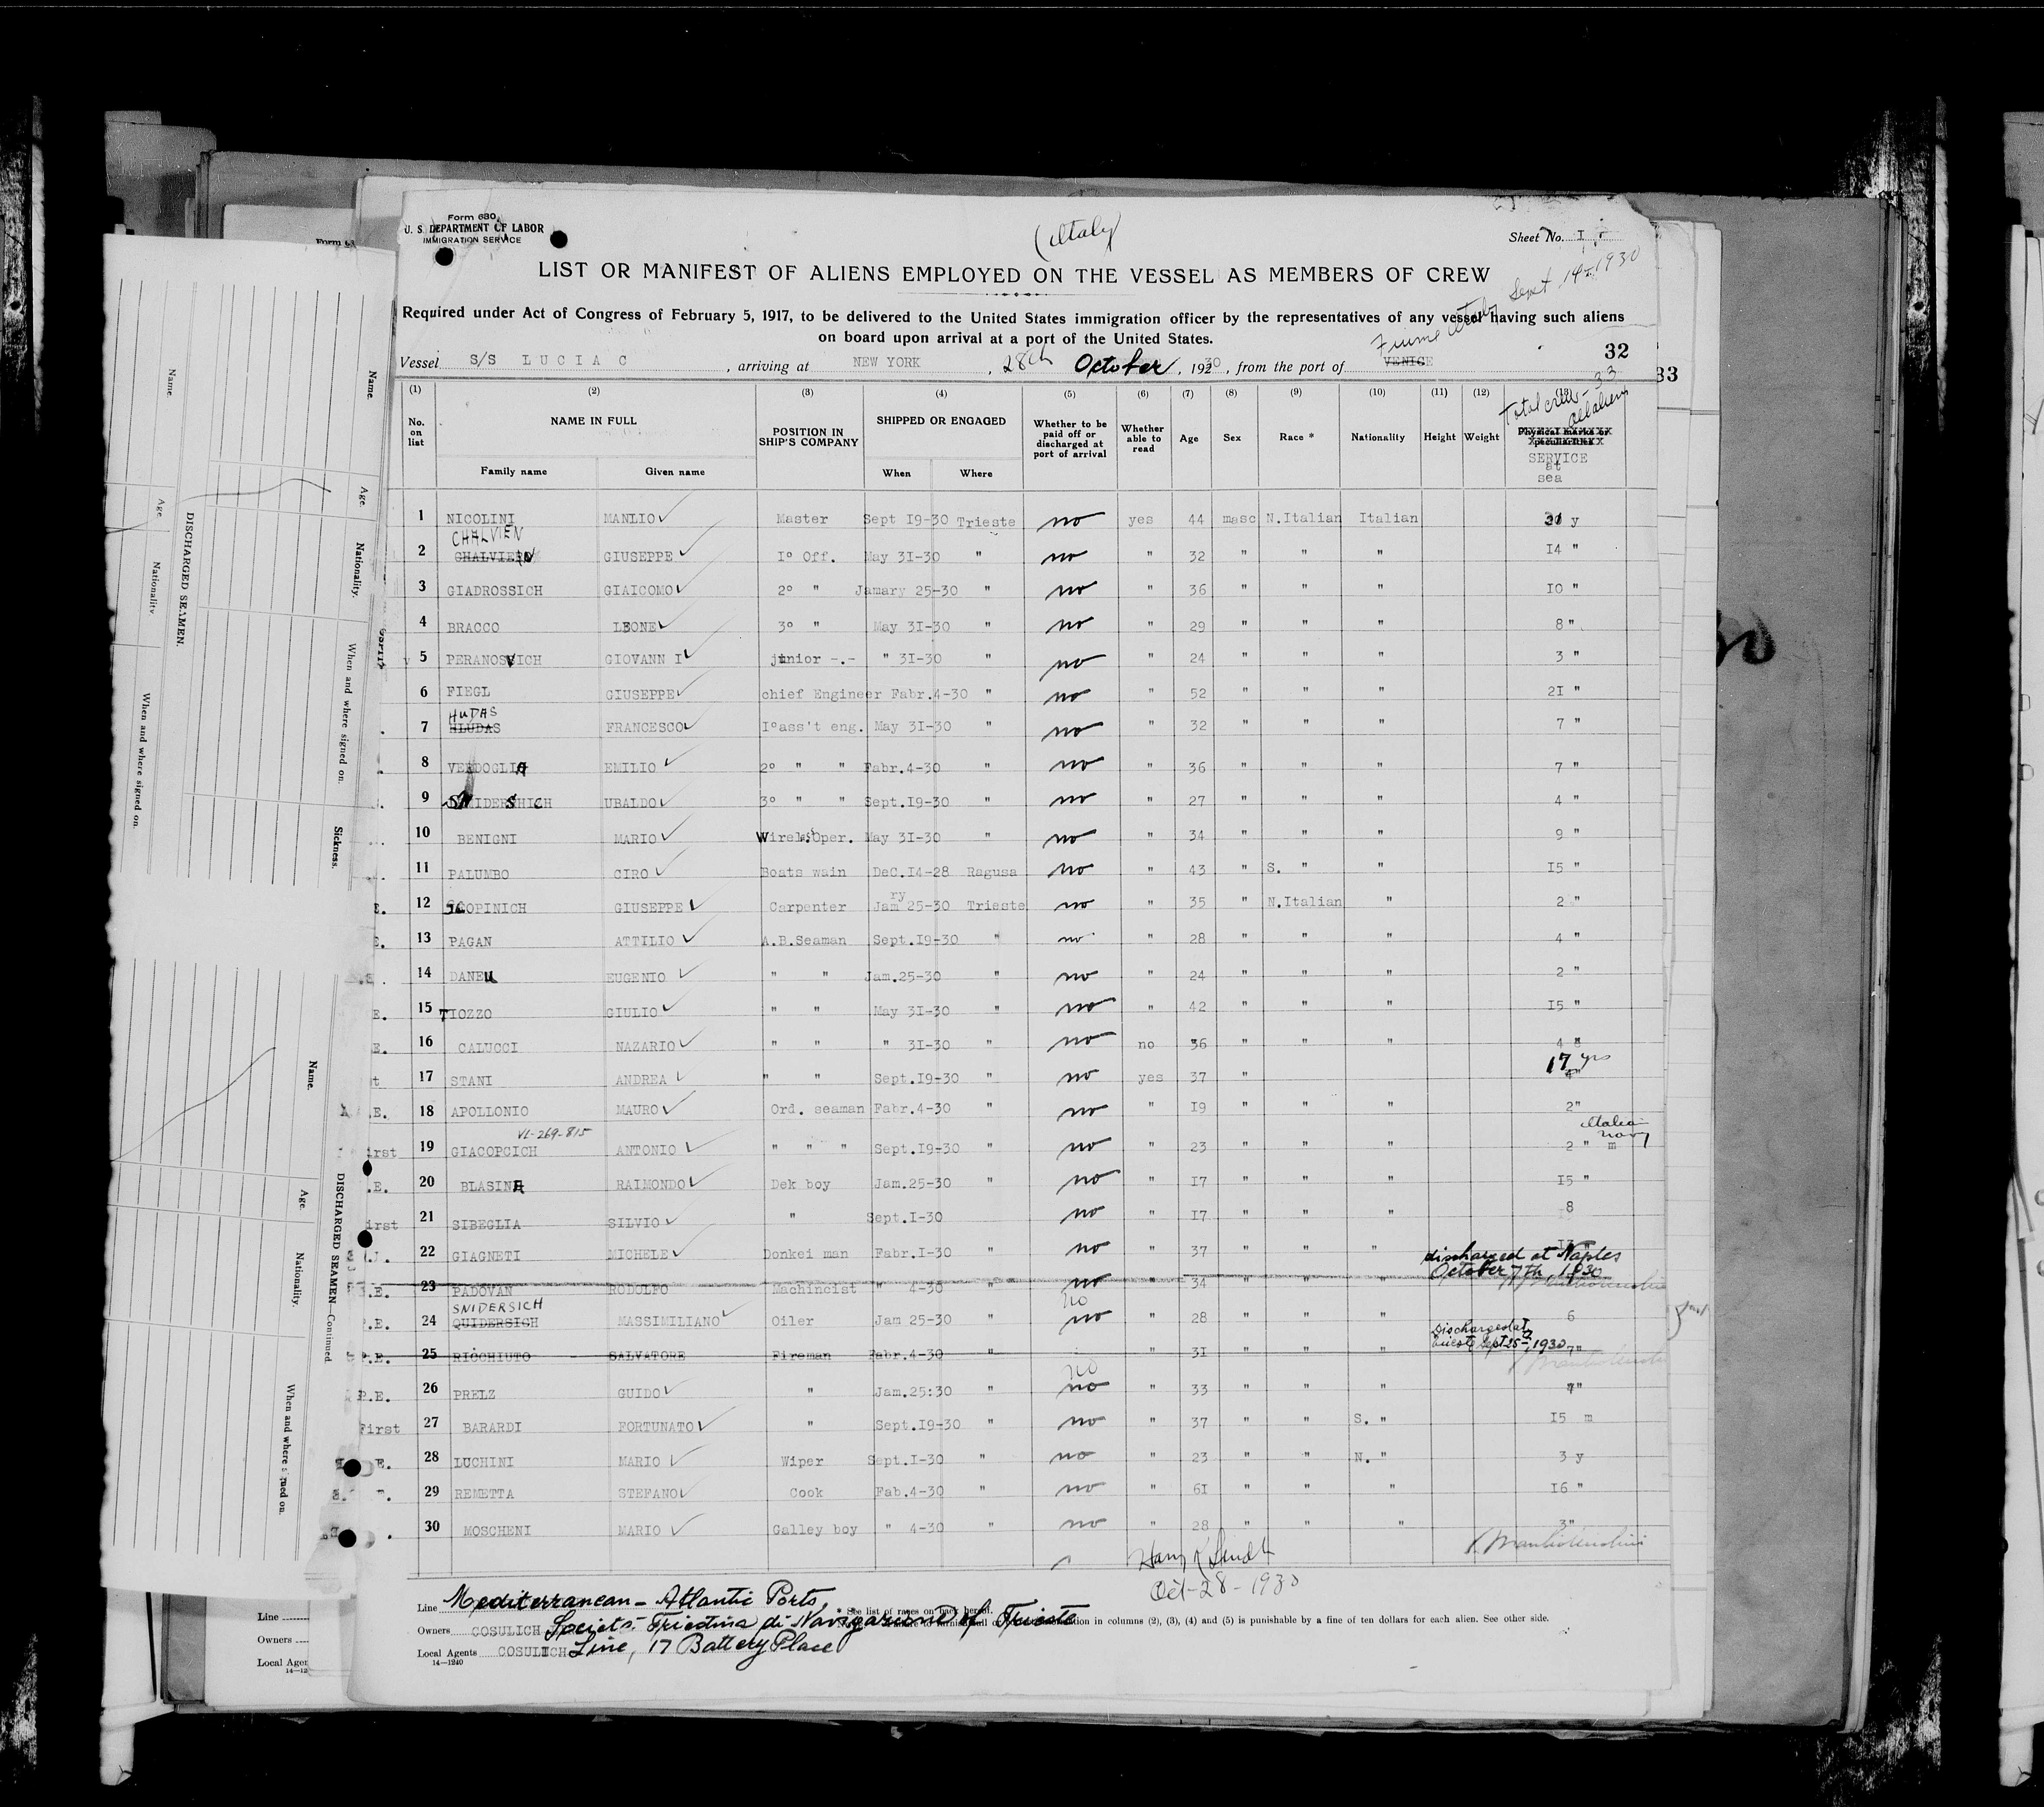 Form 630
U. S. DEPARTMENT OF LABOR
IMMIGRATION SERVICE
(Italy)
Sheet No. I
LIST OR MANIFEST OF ALIENS EMPLOYED ON THE VESSEL AS MEMBERS OF CREW
Sept 14-1930
Required under Act of Congress of February 5, 1917, to be delivered to the United States immigration officer by the representatives of any vessel having such aliens
on board upon arrival at a port of the United States.
Fiume Italy
32
Vessel S/S LUCIA C , arriving at NEW YORK , 28th October , 1930 , from the port of VENICE
33
Total crew - 33 all aliens
(1) (2) (3) (4) (5) (6) (7) (8) (9) (10) (11) (12)
No. on list NAME IN FULL Family name Given name POSITION IN SHIP'S COMPANY SHIPPED OR ENGAGED When Where Whether to be paid off or discharged at port of arrival Whether able to read Age Sex Race * Nationality Height Weight Physical marks or peculiarities SERVICE at sea
1 NICOLINI MANLIO Master Sept 19-30 Trieste no yes 44 masc N.Italian Italian y
CHALVIEN
2 GIUSEPPE I° Off. May 31-30 " no " 32 " " " 14 "
3 GIADROSSICH GIAICOMO 2° " Jamary 25-30 " no " 36 " " " 10 "
4 BRACCO LEONE 3° " May 31-30 " no " 29 " " " 8 "
5 PERANOVICH GIOVANN I junior -.- " 31-30 " no " 24 " " " 3 "
6 FIEGL GIUSEPPE chief Engineer Fabr.4-30 " no " 52 " " " 21 "
HUDAS
7 HLUDAS FRANCESCO I°ass't eng. May 31-30 " no " 32 " " " 7 "
8 VERDOGLIA EMILIO 2° " " Fabr.4-30 " no " 36 " " " 7 "
9 SNIDERSICH UBALDO 3° " " Sept.19-30 " no " 27 " " " 4 "
10 BENIGNI MARIO Wirelss Oper. May 31-30 " no " 34 " " " 9 "
11 PALUMBO CIRO Boats wain DeC.14-28 Ragusa no " 43 " S. " " 15 "
12 SCOPINICH GIUSEPPE Carpenter Jamry 25-30 Trieste no " 35 " N.Italian " 2 "
13 PAGAN ATTILIO A.B.Seaman Sept.19-30 " no " 28 " " " 4 "
14 DANEU EUGENIO " " Jam.25-30 " no " 24 " " " 2 "
15 TIOZZO GIULIO " " May 31-30 " no " 42 " " " 15 "
16 CALUCCI NAZARIO " " " 31-30 " no no 36 " " " 4
17 STANI ANDREA " " Sept.19-30 " no yes 37 " 17 yrs
18 APOLLONIO MAURO Ord. seaman Fabr.4-30 " no " 19 " " " 2"
VL-269-815
Italian navy
19 GIACOPCICH ANTONIO " " " Sept.19-30 " no " 23 " " " 2 " m
20 BLASINA RAIMONDO Dek boy Jam.25-30 " no " 17 " " " 15 "
21 SIBEGLIA SILVIO " Sept.1-30 no " 17 " " " 8
22 GIAGNETI MICHELE Donkei man Fabr.1-30 " no " 37 " " "
discharged at Naples
October 7th, 1930
23 PADOVAN RODOLFO Machincist " 4-30 " no " 34 " " "
SNIDERSICH no
24 QUIDERSICH MASSIMILIANO Oiler Jam 25-30 " no " 28 " " " 6
Discharged at
Trieste Sept 25th, 1930
25 RICCHIUTO SALVATORE Fireman Fabr.4-30 " " 31 " " " 7"
no
26 PRELZ GUIDO " Jam.25:30 " no " 33 " " "
27 BARARDI FORTUNATO " Sept.19-30 " no " 37 " " S. " 15 m
28 LUCHINI MARIO Wiper Sept.1-30 " no " 23 " " N. " 3 y
29 REMETTA STEFANO Cook Fab.4-30 " no " 61 " " " 16 "
30 MOSCHENI MARIO Galley boy " 4-30 " no " 28 " " " 3"
Oct-28-1930
Line Mediterranean - Atlantic Ports,
* See list of races on back hereof.
Owners COSULICH Societa Triestina di Navigazione of Trieste
in columns (2), (3), (4) and (5) is punishable by a fine of ten dollars for each alien. See other side.
Local Agents COSULICH Line, 17 Battery Place
14-1240
DISCHARGED SEAMEN.
Name.
Age.
Nationality.
When and where signed on.
Sickness.
DISCHARGED SEAMEN—Continued.
Name.
Age.
Nationality.
When and where signed on.
Line
Owners
Local Agen